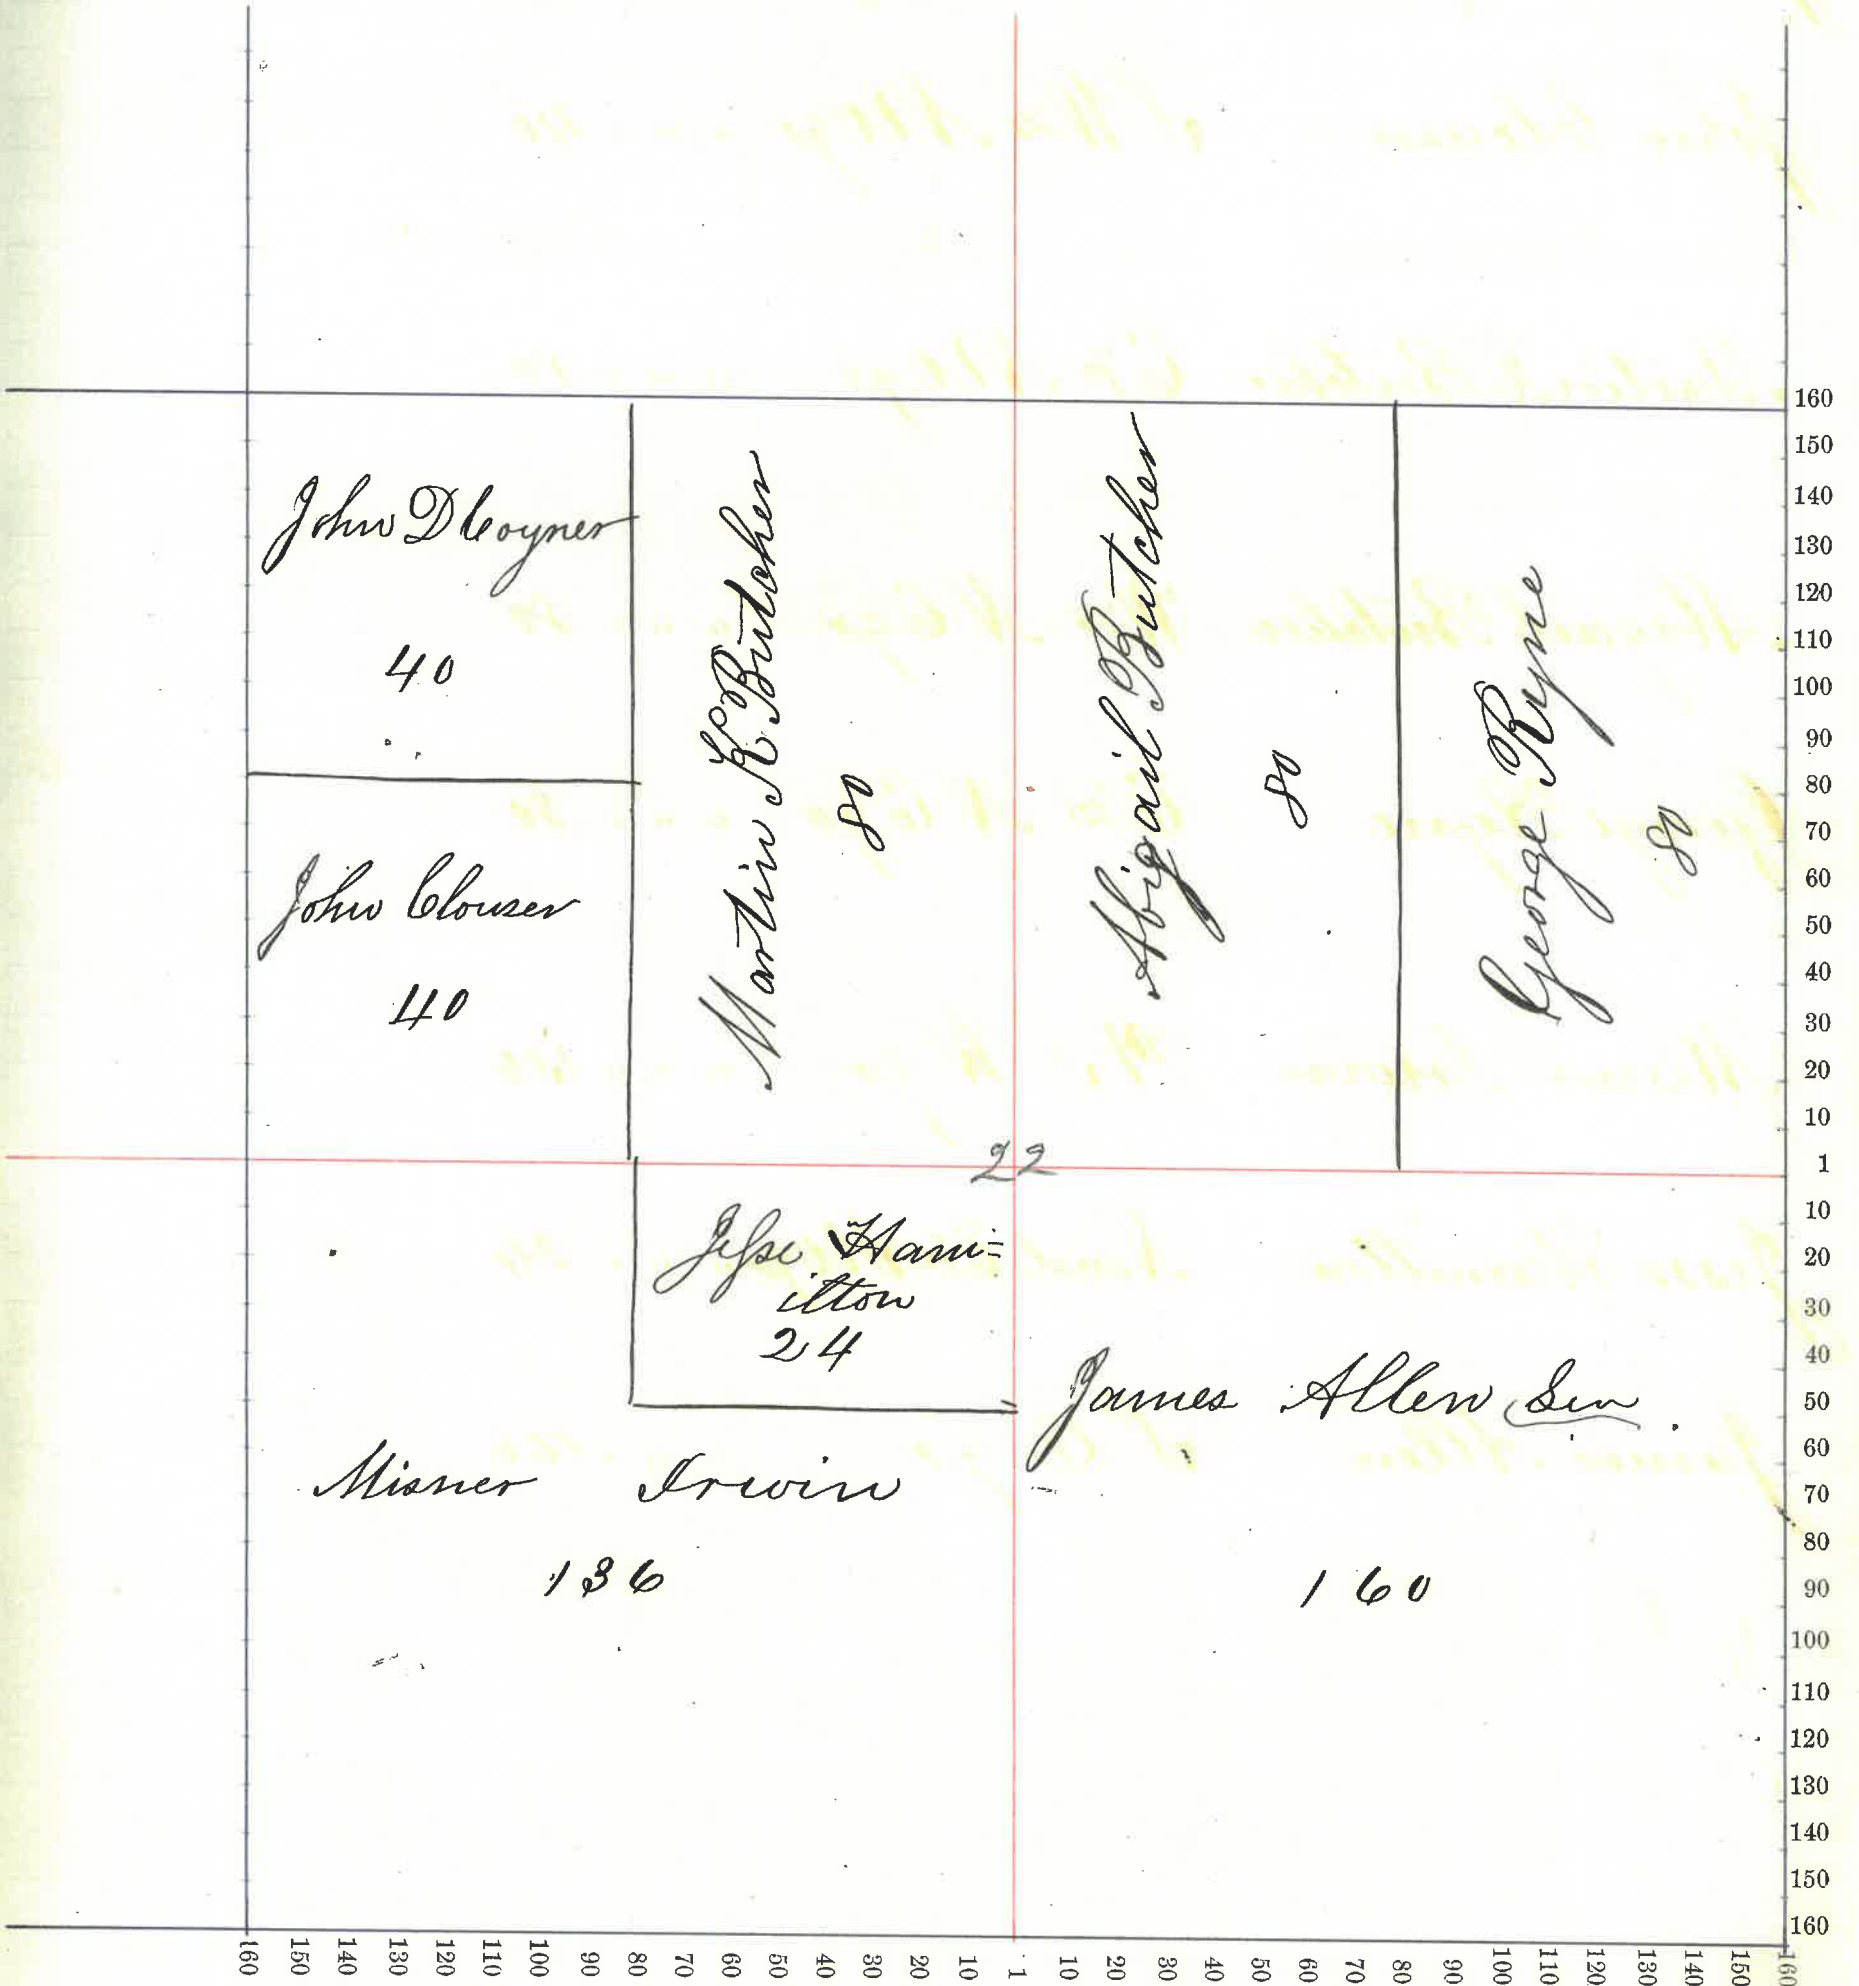 John D Coyner
40
John Clouser
40
Martin K Butcher
80
Abigail Butcher
80
George Ryne
80
22
Jesse Ham=
ilton
24
James Allen Sen
160
Misner Irwin
136
160
150
140
130
120
110
100
90
80
70
60
50
40
30
20
10
1
10
20
30
40
50
60
70
80
90
100
110
120
130
140
150
160
160 150 140 130 120 110 100 90 80 70 60 50 40 30 20 10 1 10 20 30 40 50 60 70 80 90 100 110 120 130 140 150 160